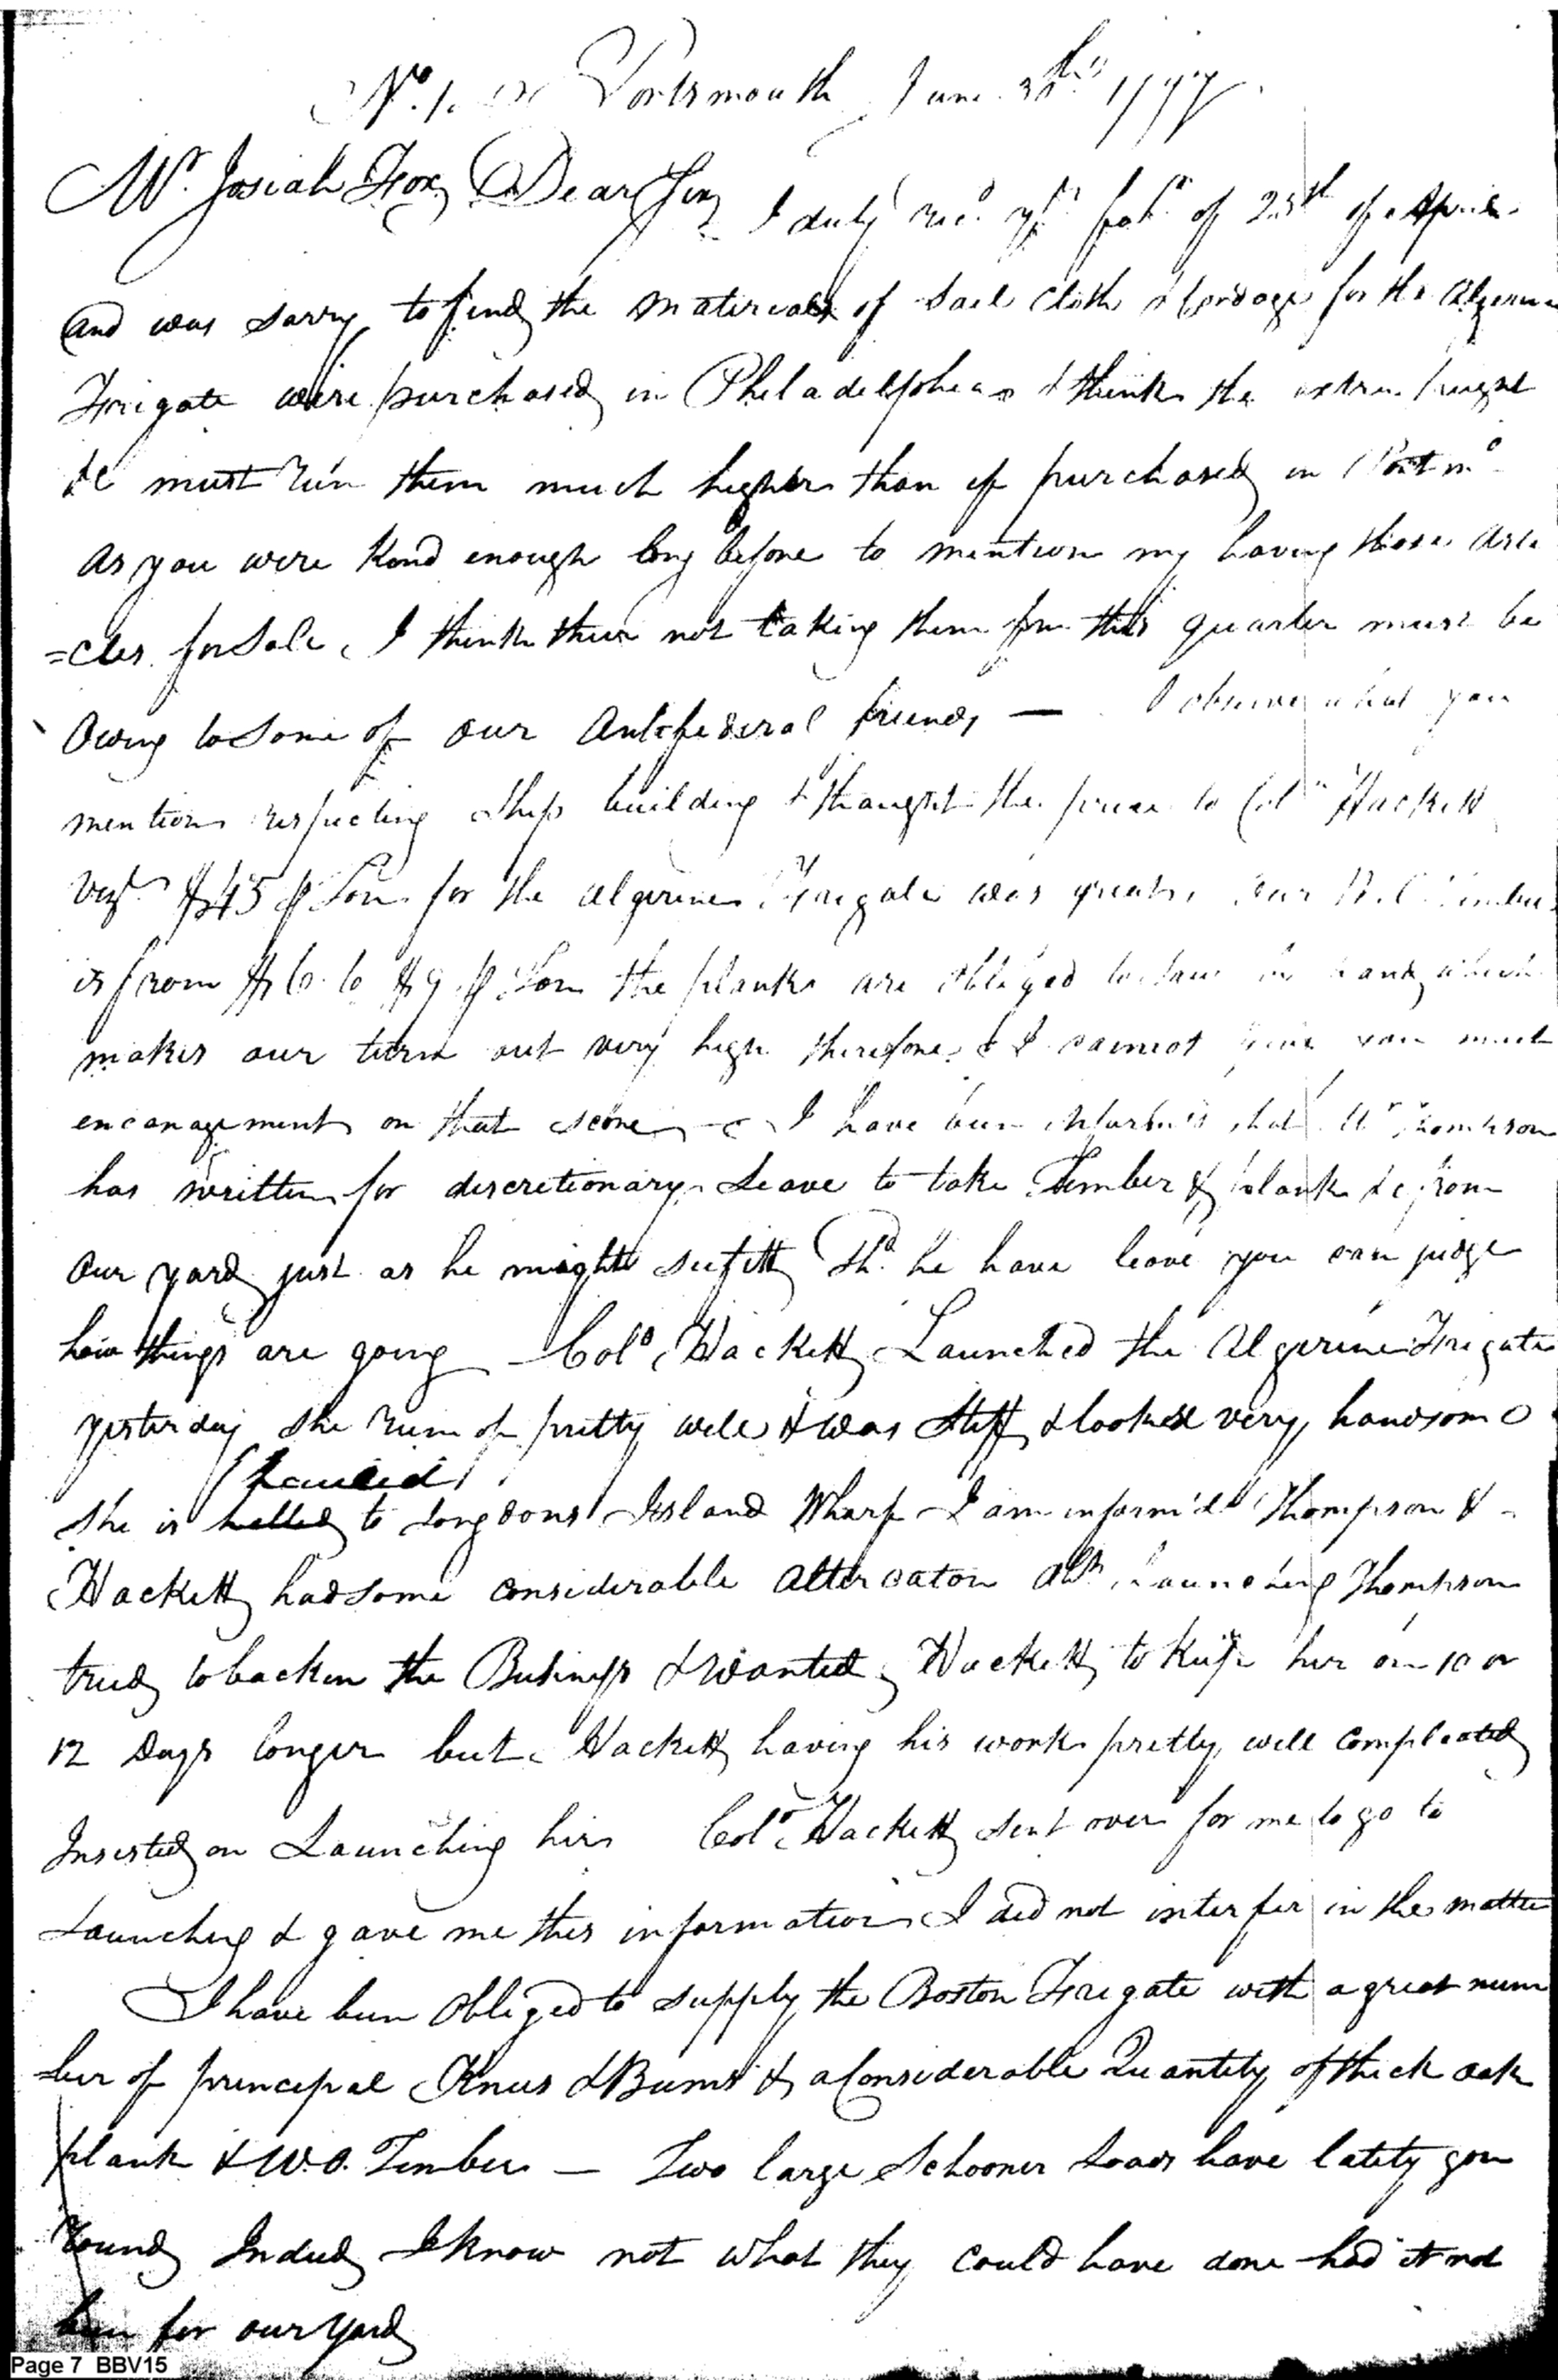 No. 1. Portsmouth June 30th 1797
Mr. Josiah Fox, Dear Sir, I duly recd. yr. favr. of 25th of April
and was sorry to find the materials of Sail Cloth & Cordage for the Algerine
Frigate were purchased in Philadelphia & think the extra freight
&c must run them much higher than if purchased in Portmo
as you were kind enough long before to mention my having those arti
=cles for Sale, I think their not taking them from this quarter must be
Owing to some of our Antifederal friends — I observe what you
mention respecting Ship building & thought the price to Colo Hackett
vizt. $45 ⅌ Ton for the Algerine Frigate was great, our W. O. Timber
is from $6 to $9 ⅌ Ton the planks are obliged to saw by hand, which
makes our turn out very high therefore I cannot give you much
encouragement on that score — I have been informed that Mr Thompson
has written for discretionary leave to take Timber & plank &c from
our yard just as he might see fitt, Shd. he have leave you can judge
how things are going — Colo Hackett Launched the Algerine Frigate
yesterday she run of pretty well & was Stiff & looked very handsome
hauled
She is halled to Longdons Island Wharf — I am inform'd Thompson &
Hackett had some considerable altercaton abt. Launching Thompson
tried to backen the Business & wanted Hackett to Keep her on 10 or
12 Days longer but Hackett having his work pretty well Compleated
Insisted on Launching her Colo. Hackett sent over for me to go to
Launching & gave me this information I did not interfer in the matter
I have been Obliged to supply the Boston Frigate with a great num
ber of principal Knees & Beams & a Considerable Quantity of thick oak
plank & W.O. Timber — Two large Schooner Loads have lately gon
round Indeed I know not what they could have done had it not
been for our Yard
Page 7 BBV15